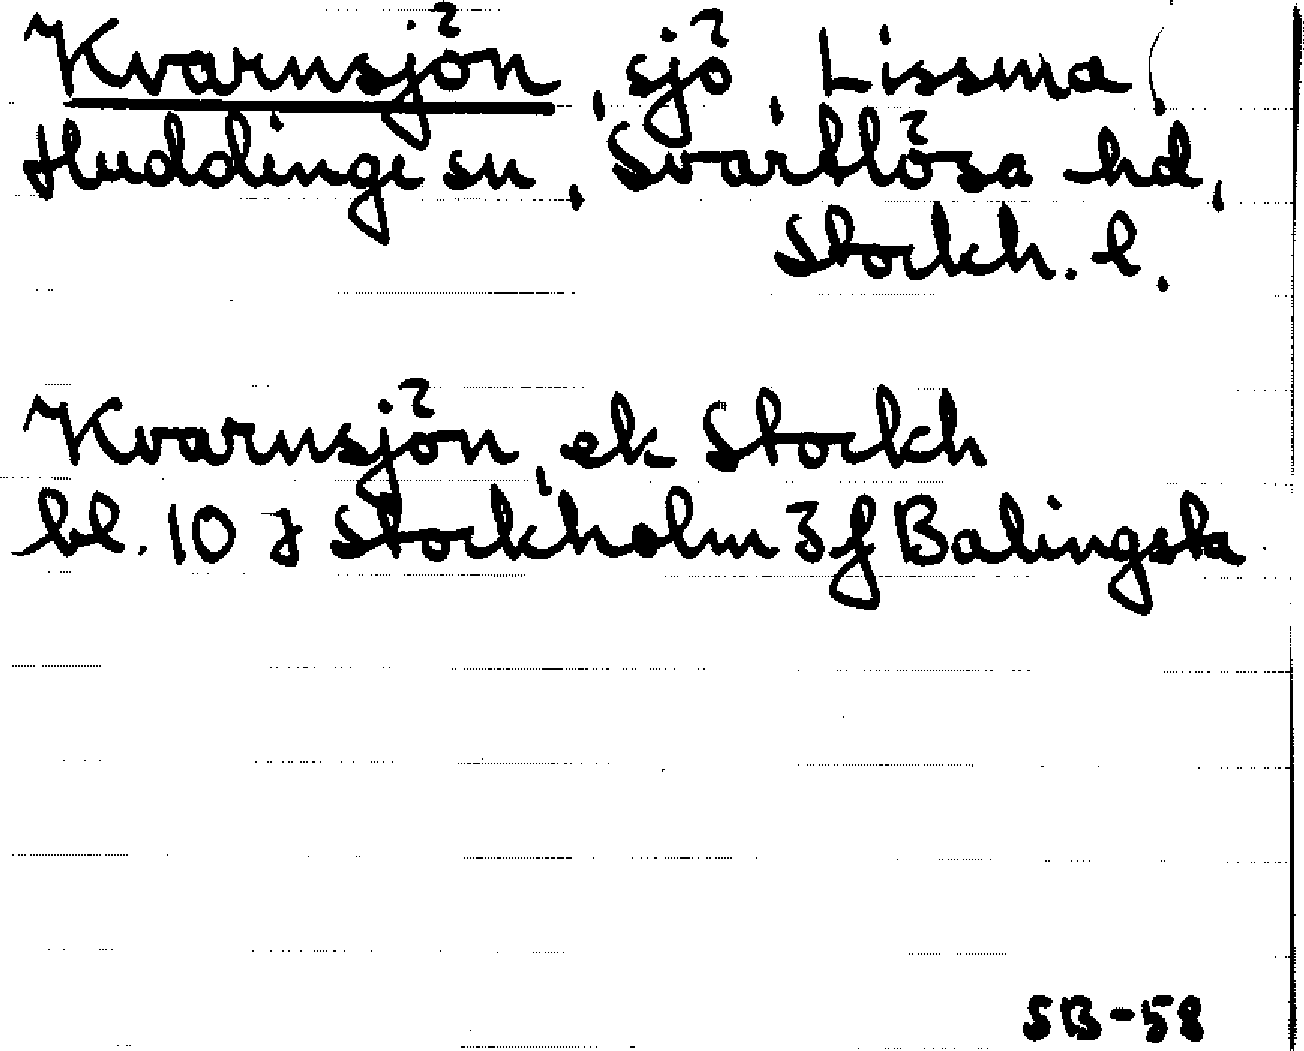 Kvarnsjön, sjö, Lissma,
Huddinge sn, Svartlösa hd,
Stockh. l.
Kvarnsjön, ek Stockh
bl. 10 J Stockholm 3 f Balingsta
SB-58